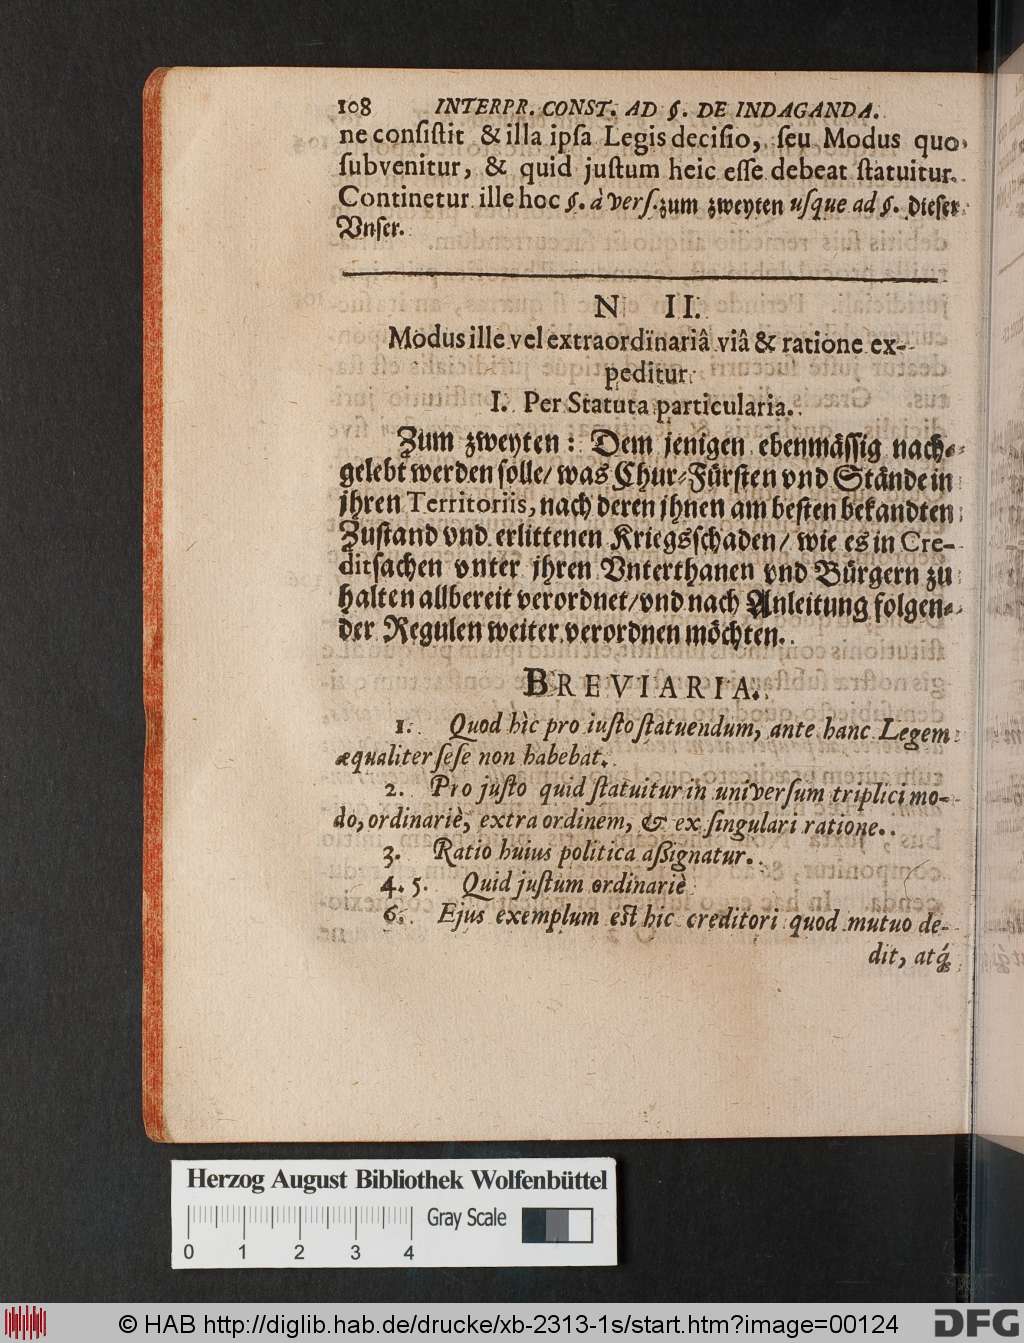 108 INTERPR. CONST. AD §. DE INDAGANDA.
ne conſiſtit & illa ipſa Legis deciſio, ſeu Modus quo
ſubvenitur, & quid juſtum heic eſſe debeat ſtatuitur.
Continetur ille hoc §. à verſ. zum zweyten uſque ad §. dieſer
Vnſer.
N II.
Modus ille vel extraordinariâ viâ & ratione ex-
peditur
I. Per Statuta particularia.
Zum zweyten: Dem jenigen ebenmäſſig nach-
gelebt werden ſolle/ was Chur-Fürſten vnd Stände in
jhren Territoriis, nach deren jhnen am beſten bekandten
Zuſtand vnd erlittenen Kriegsſchaden/ wie es in Cre-
ditſachen vnter jhren Vnterthanen vnd Bürgern zu
halten allbereit verordnet/ vnd nach Anleitung folgen-
der Regulen weiter verordnen möchten.
BREVIARIA.
1. Quod hìc pro iuſto ſtatuendum, ante hanc Legem
æqualiter ſeſe non habebat.
2. Pro juſto quid ſtatuitur in univerſum triplici mo-
do, ordinariè, extra ordinem, & ex ſingulari ratione.
3. Ratio huius politica aſſignatur.
4. 5. Quid juſtum ordinariè
6. Ejus exemplum eſt hic creditori quod mutuo de-
dit, atq́;
Herzog August Bibliothek Wolfenbüttel
Gray Scale
0 1 2 3 4
© HAB http://diglib.hab.de/drucke/xb-2313-1s/start.htm?image=00124
DFG